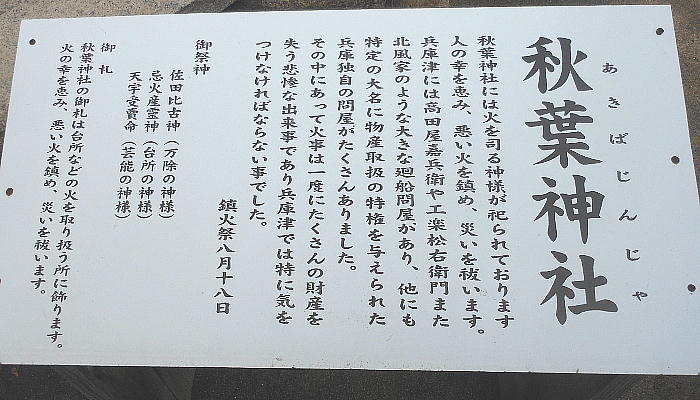 秋葉神社
あきばじんじゃ
秋葉神社には火を司る神様が祀られております
人の幸を恵み、悪い火を鎮め、災いを祓います。
兵庫津には高田屋嘉兵衛や工楽松右衛門また
北風家のような大きな廻船問屋があり、他にも
特定の大名に物産取扱の特権を与えられた
兵庫独自の問屋がたくさんありました。
その中にあって火事は一度にたくさんの財産を
失う悲惨な出来事であり兵庫津では特に気を
つけなければならない事でした。
鎮火祭八月十八日
御祭神
佐田比古神(万除の神様)
忌火産霊神(台所の神様)
天宇受賣命(芸能の神様)
御札
秋葉神社の御札は台所などの火を取り扱う所に飾ります。
火の幸を恵み、悪い火を鎮め、災いを祓います。